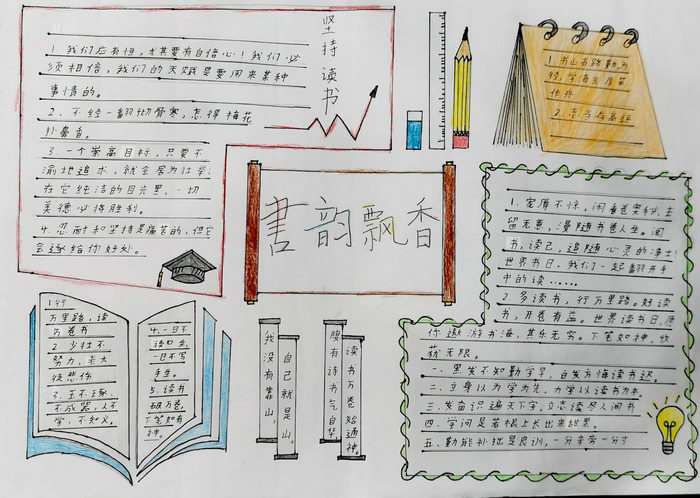 坚持读书
1. 我们应有恒，尤其要有自信心！我们必
须相信，我们的天赋是要用来某种
事情的。
2. 不经一翻彻骨寒，怎得梅花
扑鼻香。
3. 一个崇高目标，只要不
渝地追求，就会居为壮举；
在它纯洁的目光里，一切
美德必将胜利。
4. 忍耐和坚持是痛苦的，但它
会逐给你好处。
1. 书山有路勤为
径，学海无崖苦
作舟
書韵飘香
万里路，读
万卷书
2. 少壮不
努力，老大
徒悲伤
3. 玉不琢，
不成器，人不
学，不知义。
4. 一日不
读口生，
一日不写
手生。
5. 读书
破万卷，
下笔如有
神。
我没有靠山，
自己就是山。
腹有诗书气自华
读书万卷始通神。
留无意，漫随书卷人生。闲
书，读己，追随心灵的净土！
世界书日，我们一起翻开手
中的读……
2. 多读书，行万里路。好读
书，开卷有益。世界读书日，愿
你遨游书海，其乐无穷。下笔如神，收
获无限。
一. 黑发不知勤学早，白发方悔读书迟。
二. 立身以为学为先，为学以读书为本。
三. 发奋识遍天下字，立志读尽人间书
四. 学问是苦根上长出来甜果。
五. 勤能补拙是良训，一分辛劳一分才